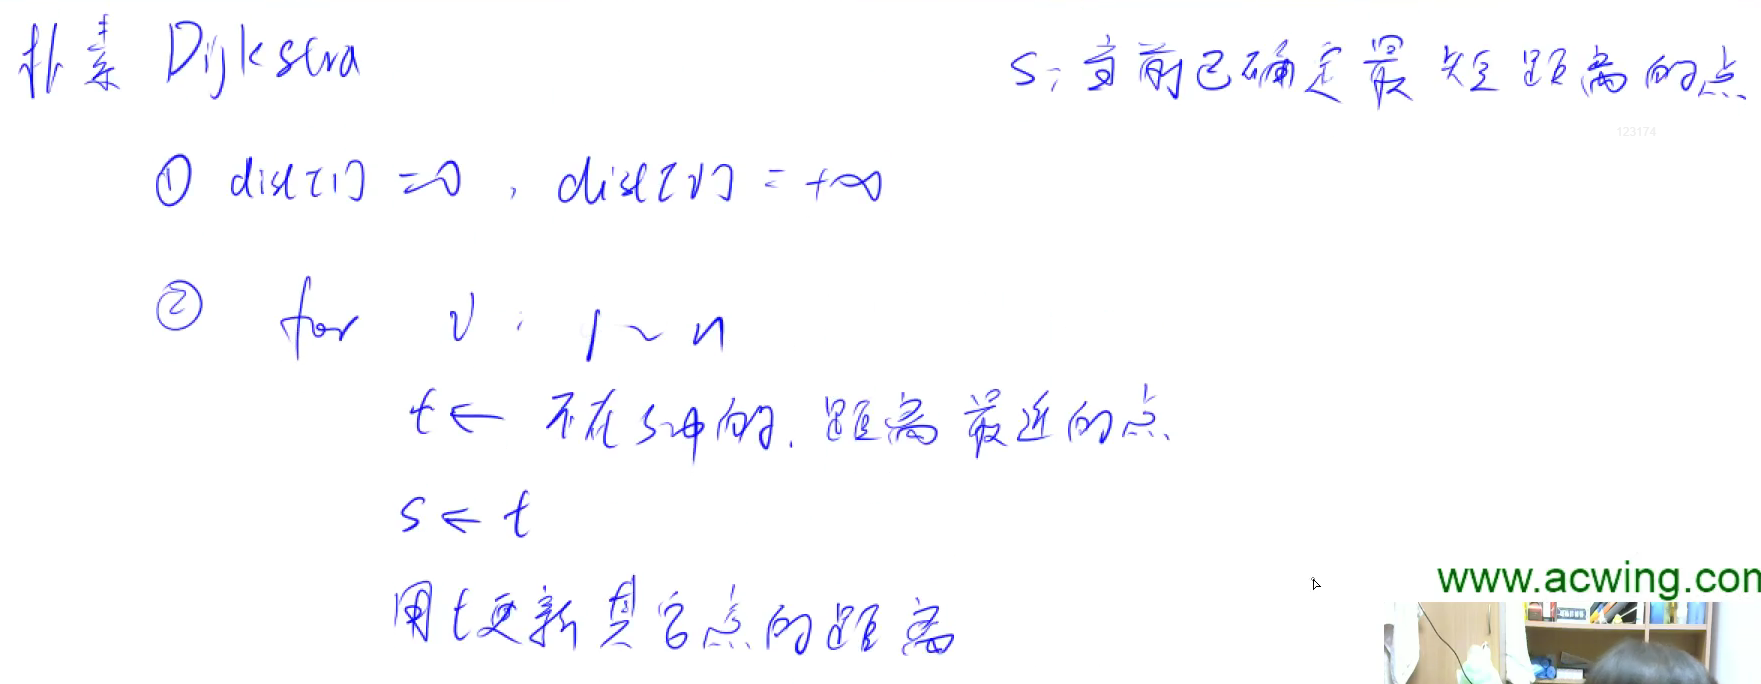 朴素 Dijkstra
S: 当前已确定最短距离的点
123174
① dist[1] = 0, dist[i] = +∞
② for i: 1~n
t ← 不在s中的, 距离最近的点
s ← t
用t更新其它点的距离
www.acwing.con